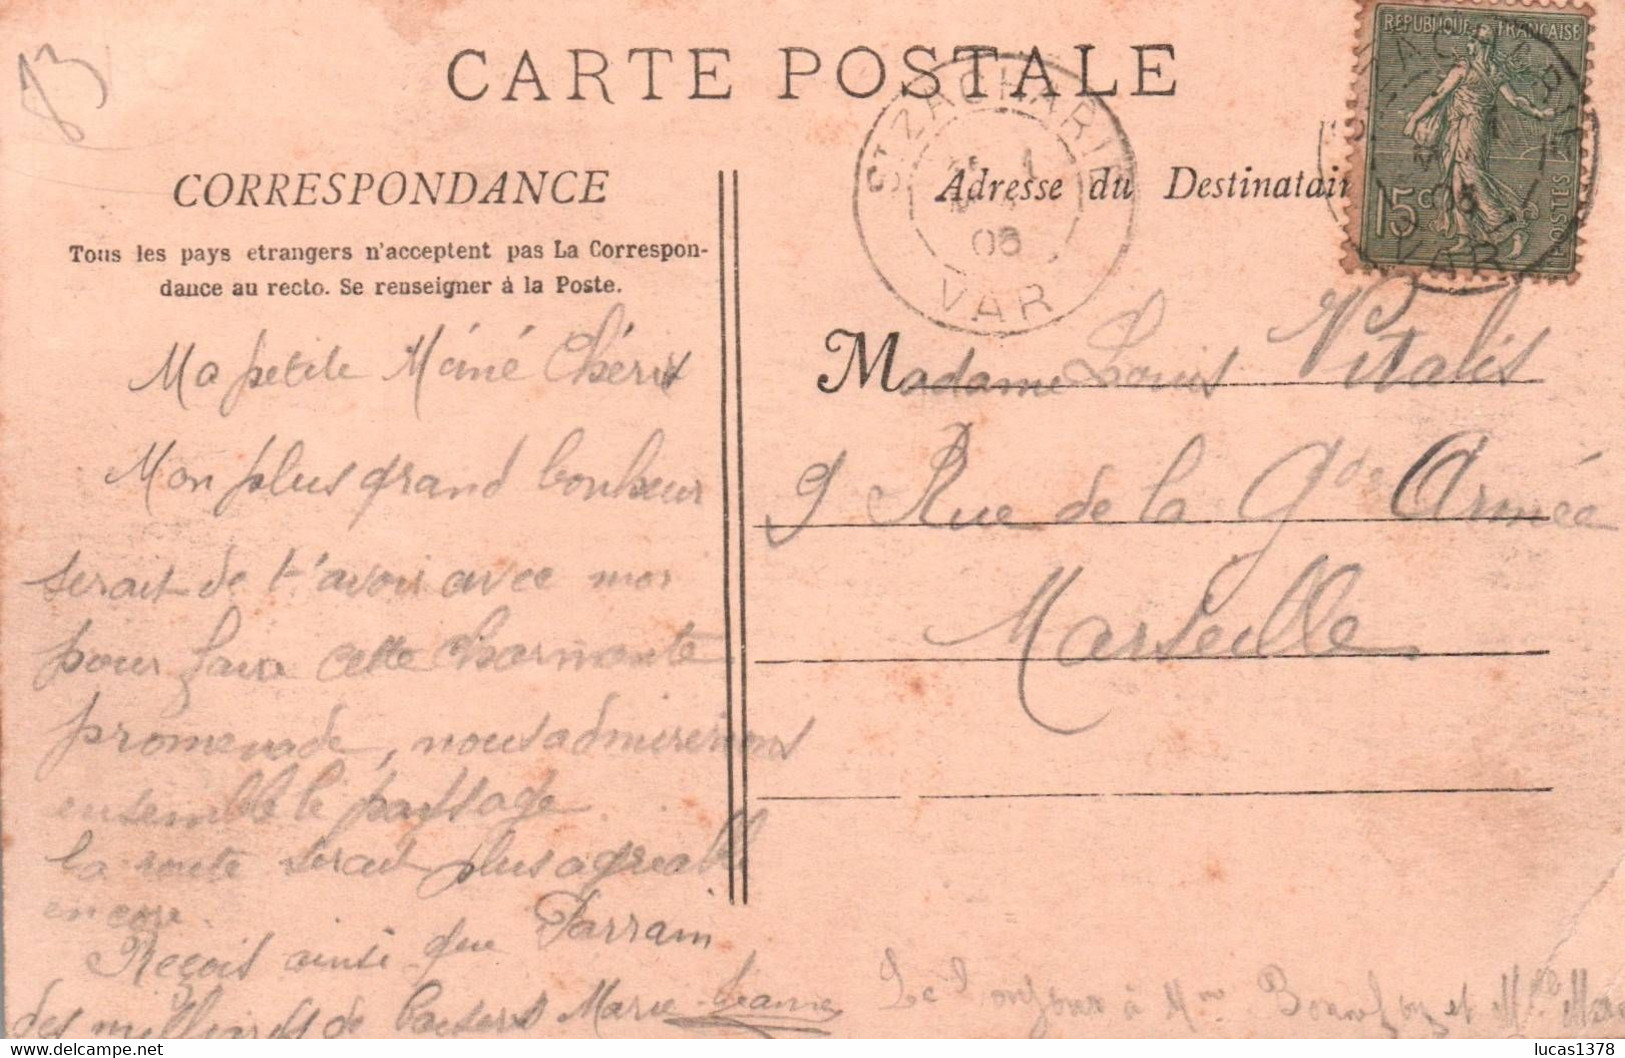 83
CARTE POSTALE
ST ZACHARIE
05
VAR
REPUBLIQUE FRANÇAISE
15c
POSTES
ZACHARIE
05
VAR
CORRESPONDANCE
Tous les pays etrangers n'acceptent pas La Correspon-
dance au recto. Se renseigner á la Poste.
Ma petite Mémé Chérie
Mon plus grand bonheur
serait de t'avoir avec moi
pour faire cette charmante
promenade, nous admirerions
ensemble le paysage.
la route serait plus agréable
encore.
Reçois ainsi que Parrain
des milliards de baisers Marie-Jeanne
Adresse du Destinatair
Madame Louis Vitalis
9 Rue de la Gde Armée
Marseille
Le bonjour à Mme et Mlle
lucas1378